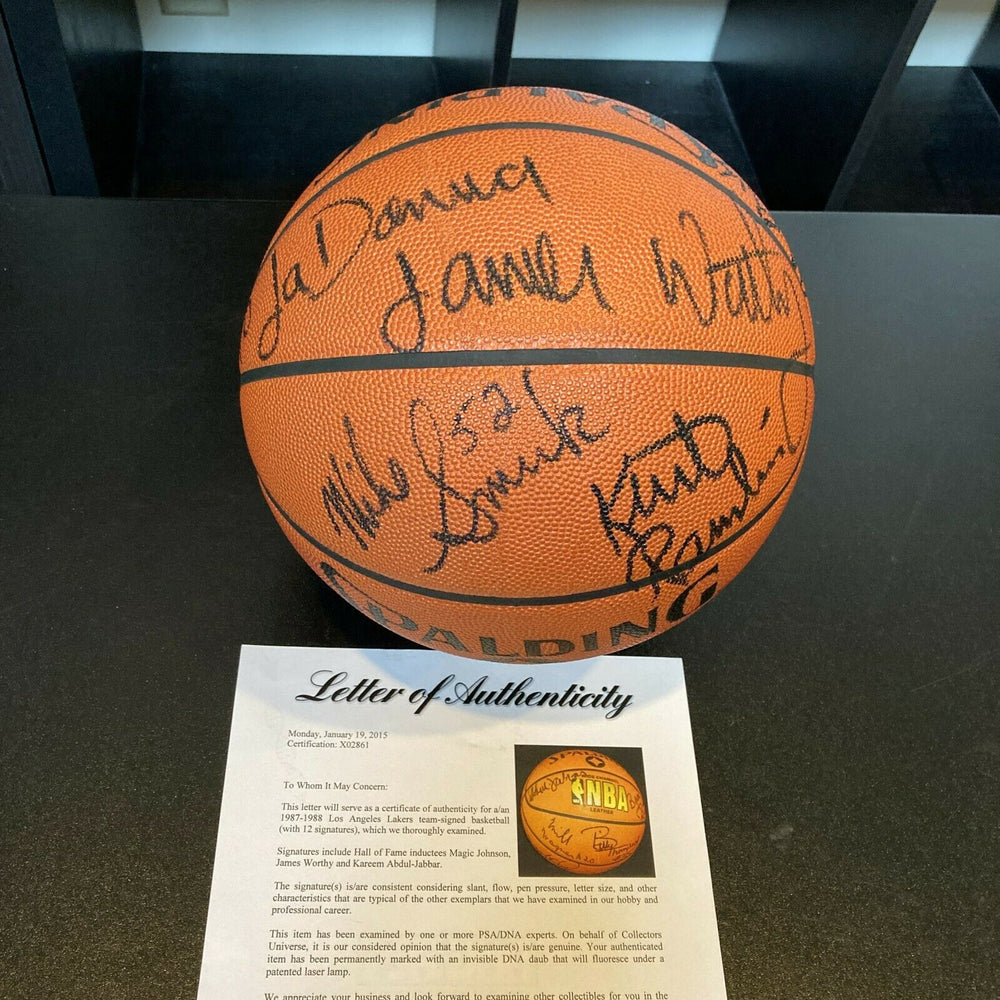 SPALDING
LaDanny
Jamel Watki
Mike Smrek 52
Kurt Rambis
SPALDING
Letter of Authenticity
Monday, January 19, 2015
Certification: X02861
SPALDING
NBA
LEATHER
To Whom It May Concern:
This letter will serve as a certificate of authenticity for a/an
1987-1988 Los Angeles Lakers team-signed basketball
(with 12 signatures), which we thoroughly examined.
Signatures include Hall of Fame inductees Magic Johnson,
James Worthy and Kareem Abdul-Jabbar.
The signature(s) is/are consistent considering slant, flow, pen pressure, letter size, and other
characteristics that are typical of the other exemplars that we have examined in our hobby and
professional career.
This item has been examined by one or more PSA/DNA experts. On behalf of Collectors
Universe, it is our considered opinion that the signature(s) is/are genuine. Your authenticated
item has been permanently marked with an invisible DNA daub that will fluoresce under a
patented laser lamp.
We appreciate your business and look forward to examining other collectibles for you in the